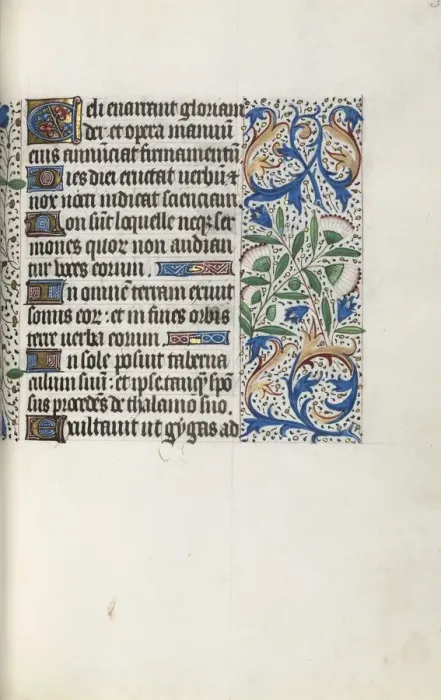 Celi enarrant gloriam
dei· et opera manuū
eius annūciat firmamentū
Dies diei eructat uerbū ⁊
nox nocti indicat scienciam
Non sūt loquelle neqꝫ ser
mones quoꝝ non audian
tur uoces eorum.
In omnē terram exiuit
sonus eoꝝ: et in fines orbis
terre uerba eorum.
In sole posuit taberna
culum suū: et ipse tanqꝫ spō
sus procedēs de thalamo suo.
Exultauit ut gygas ad